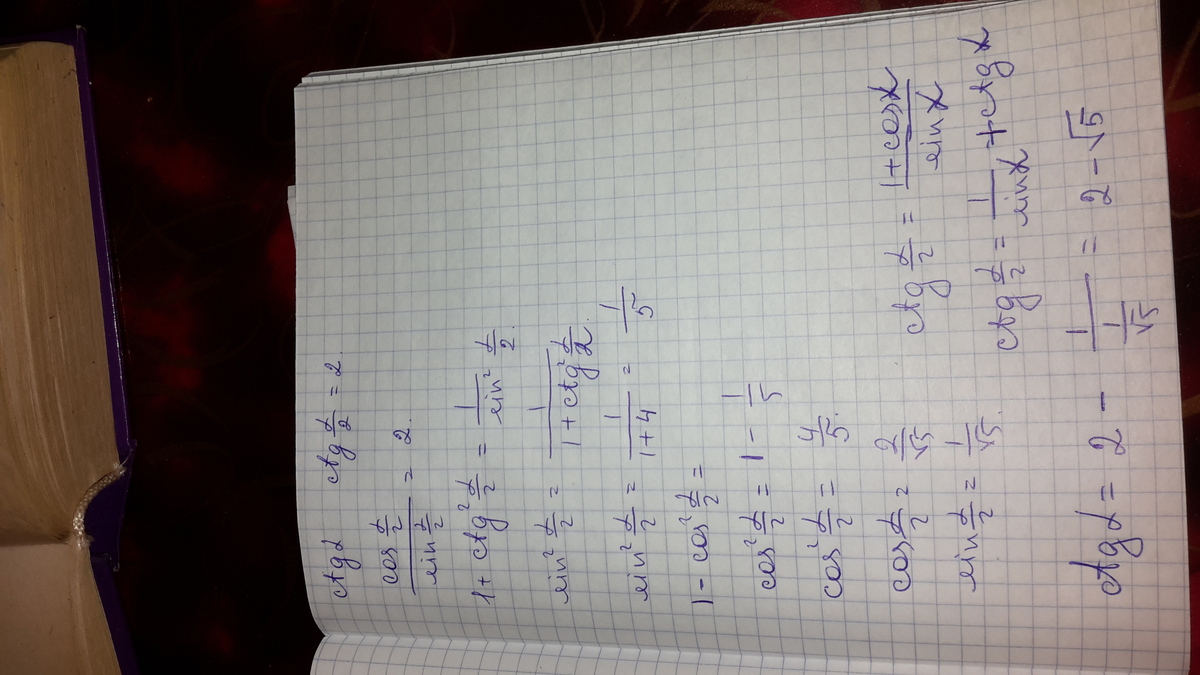 ctgα ctg α/2 = 2.
cos α/2 / sin α/2 = 2.
1 + ctg² α/2 = 1 / sin² α/2.
sin² α/2 = 1 / (1 + ctg² α/2).
sin² α/2 = 1 / (1+4) = 1/5
1 - cos² α/2 =
cos² α/2 = 1 - 1/5
cos² α/2 = 4/5.
cos α/2 = 2/√5
sin α/2 = 1/√5.
ctg α/2 = (1 + cosα) / sinα
ctg α/2 = 1 / sinα + ctgα
ctgα = 2 - 1 / (1/√5) = 2 - √5